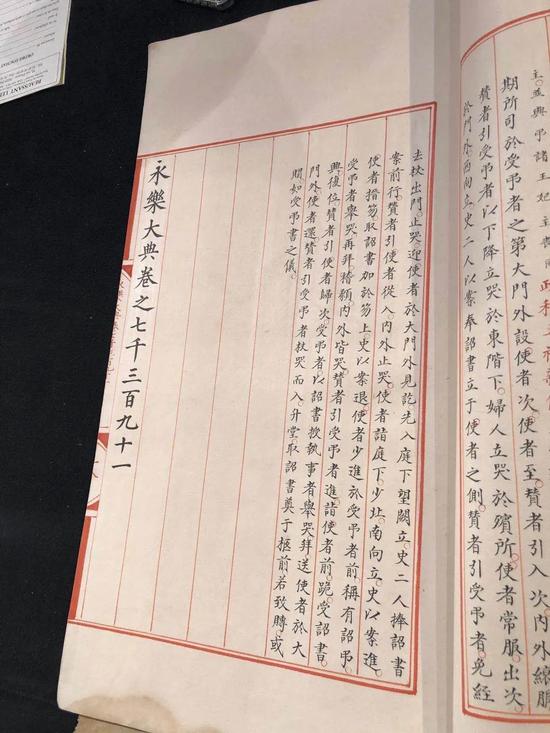 期所司於受弔者之第大門外設使者次使者至贊者引入次內外縗服
贊者引受弔者以下降立哭於東階下婦人立哭於殯所使者常服出次
於門外西向立史二人以案奉詔書立于使者之側贊者引受弔者免絰
去杖出門止哭迎使者於大門外見訖先入庭下望闕立史二人捧詔書
案前行贊者引使者從入內外止哭使者詣庭下少北南向立史以案進
使者搢笏取詔書加於笏上史以案退使者少進於受弔者前稱有詔弔
受弔者舉哭再拜稽顙內外皆哭贊者引受弔者進詣使者前跪受詔書
興復位贊者引使者歸次受弔者以詔書授執事者舉哭拜送使者於大
門外使者還贊者引受弔者杖哭而入升堂取詔書奠于柩前若致賻或
賵如受弔書之儀
永樂大典卷之七千三百九十一